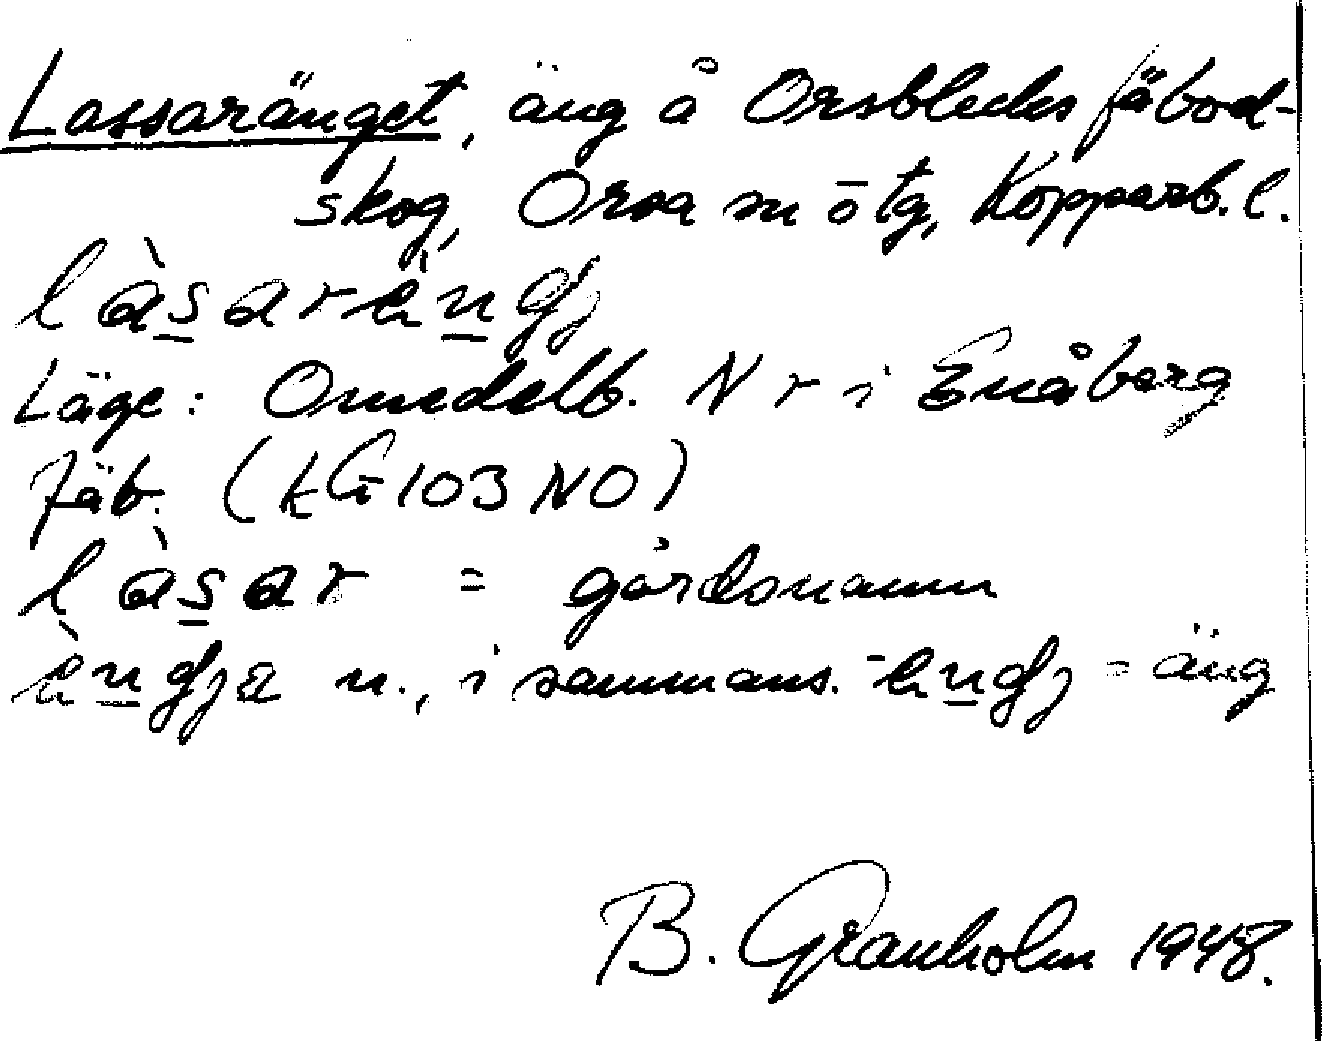 Lassaränget, äng å Orsblecks fäbod-
skog, Orsa sn ö tg, Kopparb. l.
làsarèngj
Läge: Omedelb. N r i Enåberg
Fäb. (kG 103 NO)
làsar = gårdsnamn
èngja n., i sammans. -engj = äng
B. Granholm 1948.